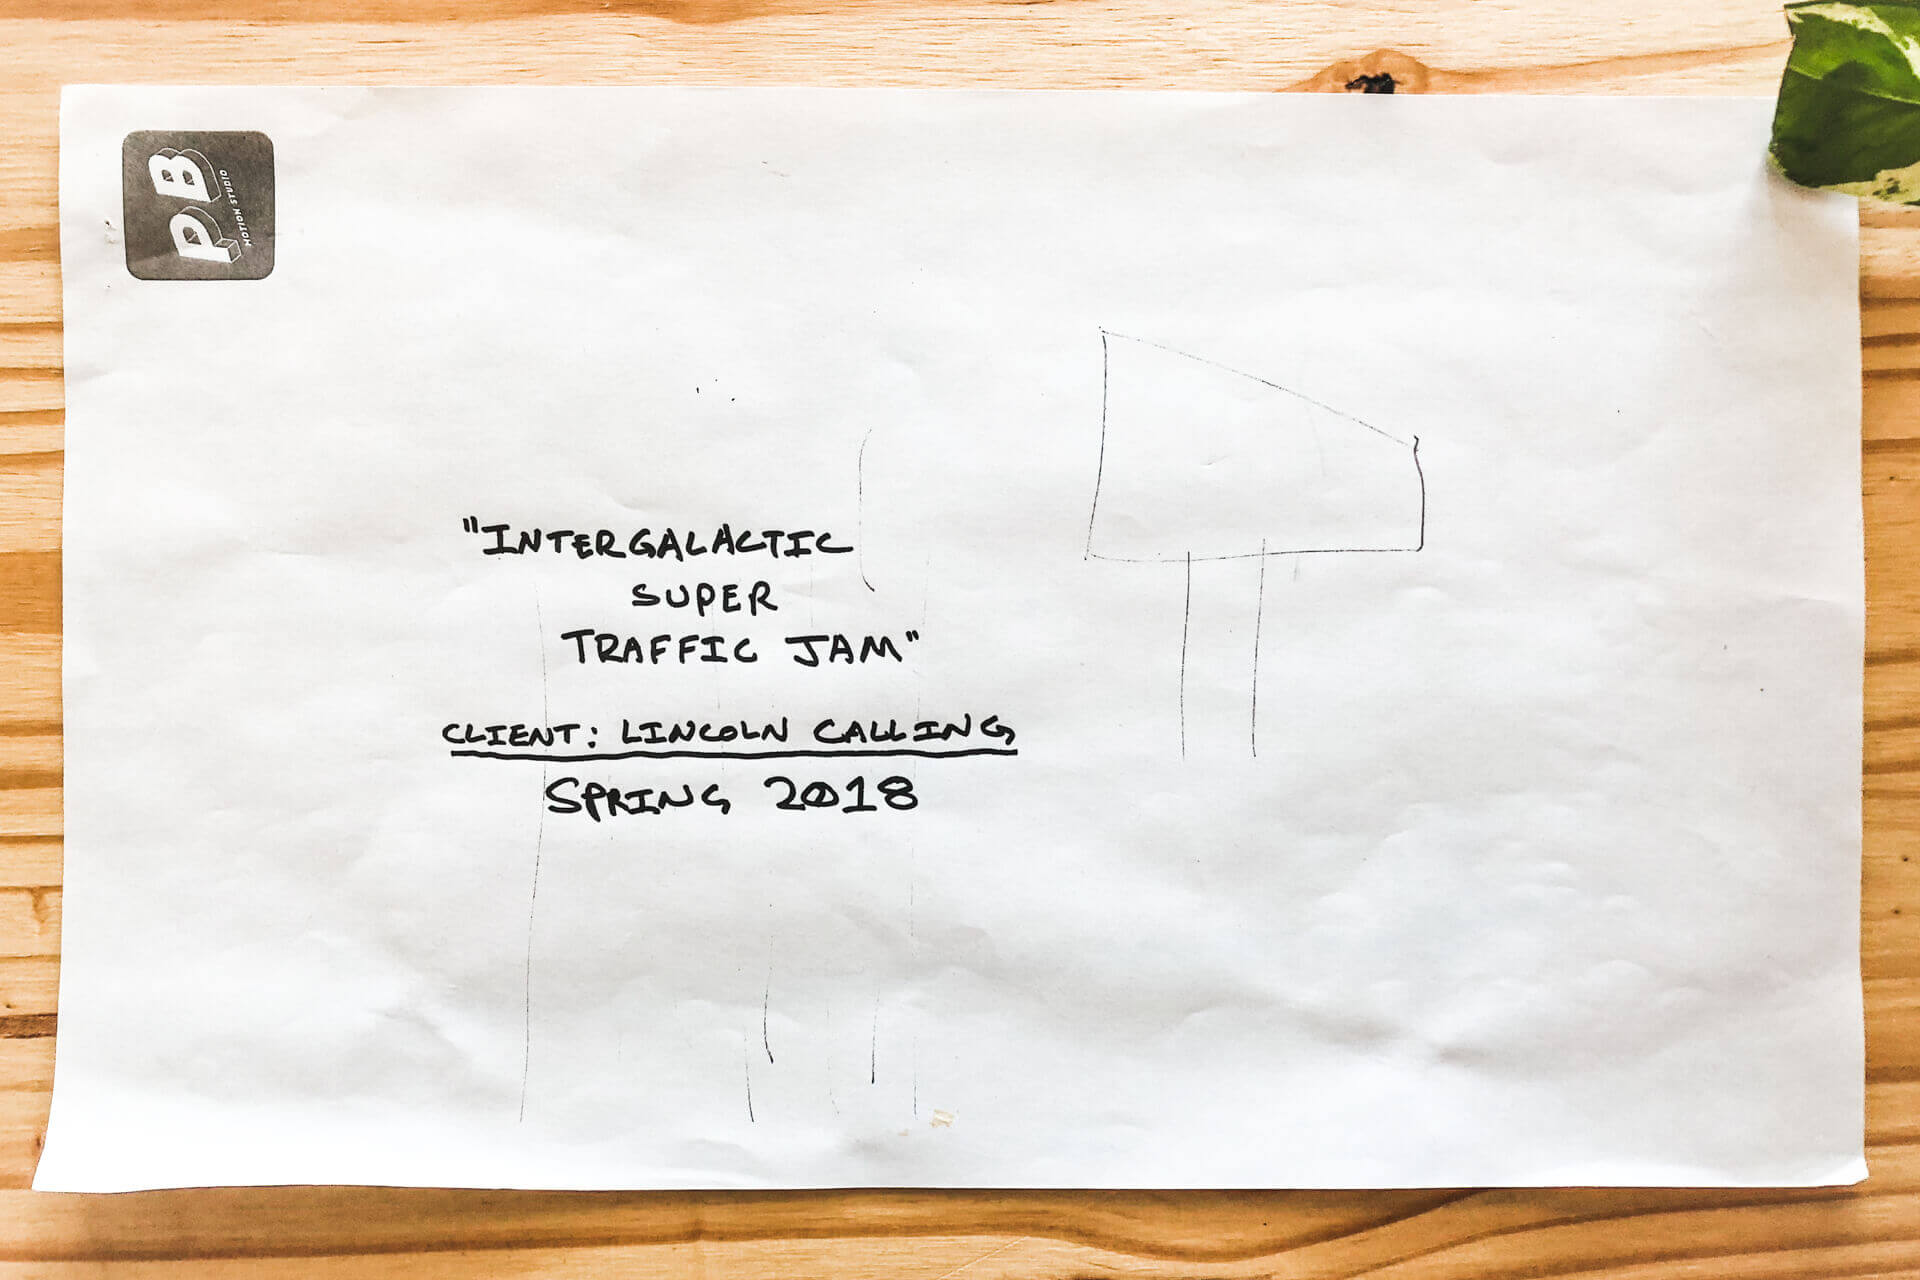 PB
MOTION STUDIO
"INTERGALACTIC
SUPER
TRAFFIC JAM"
CLIENT: LINCOLN CALLING
SPRING 2018